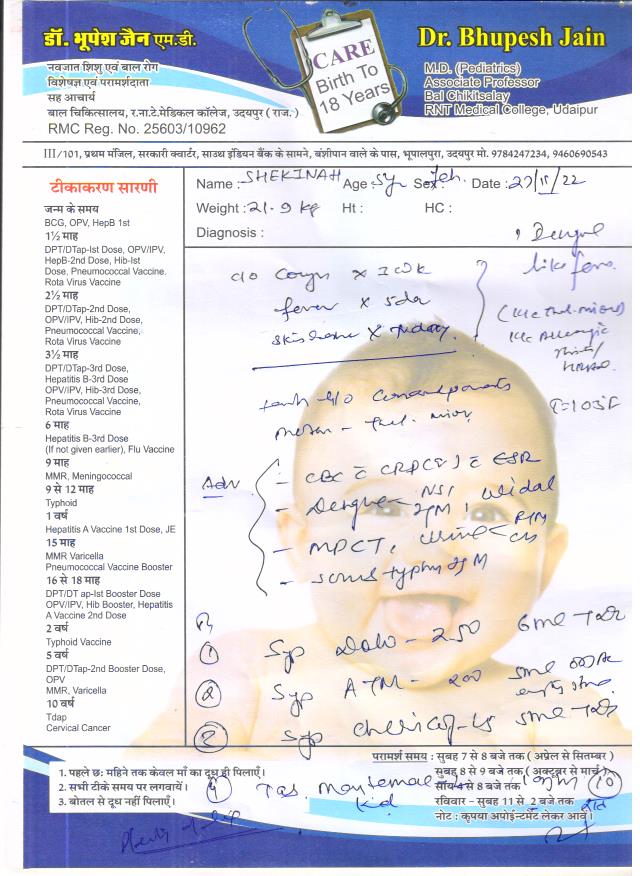 डॉ. भूपेश जैन एम.डी.
नवजात शिशु एवं बाल रोग
विशेषज्ञ एवं परामर्शदाता
सह आचार्य
बाल चिकित्सालय, र.ना.टे.मेडिकल कॉलेज, उदयपुर ( राज.)
RMC Reg. No. 25603/10962
CARE
Birth To
18 Years
Dr. Bhupesh Jain
M.D. (Pediatrics)
Associate Professor
Bal Chikitsalay
RNT Medical College, Udaipur
III/101, प्रथम मंजिल, सरकारी क्वार्टर, साउथ इंडियन बैंक के सामने, बंशीपान वाले के पास, भूपालपुरा, उदयपुर मो. 9784247234, 9460690543
टीकाकरण सारणी
जन्म के समय
BCG, OPV, HepB 1st
1½ माह
DPT/DTap-Ist Dose, OPV/IPV,
HepB-2nd Dose, Hib-Ist
Dose, Pneumococcal Vaccine.
Rota Virus Vaccine
2½ माह
DPT/DTap-2nd Dose,
OPV/IPV, Hib-2nd Dose,
Pneumococcal Vaccine,
Rota Virus Vaccine
3½ माह
DPT/DTap-3rd Dose,
Hepatitis B-3rd Dose
OPV/IPV, Hib-3rd Dose,
Pneumococcal Vaccine,
Rota Virus Vaccine
6 माह
Hepatitis B-3rd Dose
(If not given earlier), Flu Vaccine
9 माह
MMR, Meningococcal
9 से 12 माह
Typhoid
1 वर्ष
Hepatitis A Vaccine 1st Dose, JE
15 माह
MMR Varicella
Pneumococcal Vaccine Booster
16 से 18 माह
DPT/DT ap-Ist Booster Dose
OPV/IPV, Hib Booster, Hepatitis
A Vaccine 2nd Dose
2 वर्ष
Typhoid Vaccine
5 वर्ष
DPT/DTap-2nd Booster Dose,
OPV
MMR, Varicella
10 वर्ष
Tdap
Cervical Cancer
Name : SHEKINAH Age : 5y Sex : Feh. Date : 27/11/22
Weight : 21.9 kg Ht : HC :
Diagnosis :
Dengue
like fever
c/o Cough x 1 wk
fever x 5da
x Today
T=103°F
Adv
- CBC c̄ CRP c̄ ESR
- Dengue NS1 IgM, Widal
- MPCT, urine R/M C/S
- scrub typhus IgM
Rx
① Syp - 250 6ml TDS
② Syp ATM - 200 5ml
③ Syp 5ml TDS
④ Tab. kid ⑩
परामर्श समय : सुबह 7 से 8 बजे तक ( अप्रेल से सितम्बर )
सुबह 8 से 9 बजे तक ( अक्टूबर से मार्च )
सायं 4 से 8 बजे तक
रविवार - सुबह 11 से 2 बजे तक
नोट : कृपया अपोईन्टमेंट लेकर आवें।
1. पहले छः महिने तक केवल माँ का दूध ही पिलाएँ।
2. सभी टीके समय पर लगवायें।
3. बोतल से दूध नहीं पिलाएँ।